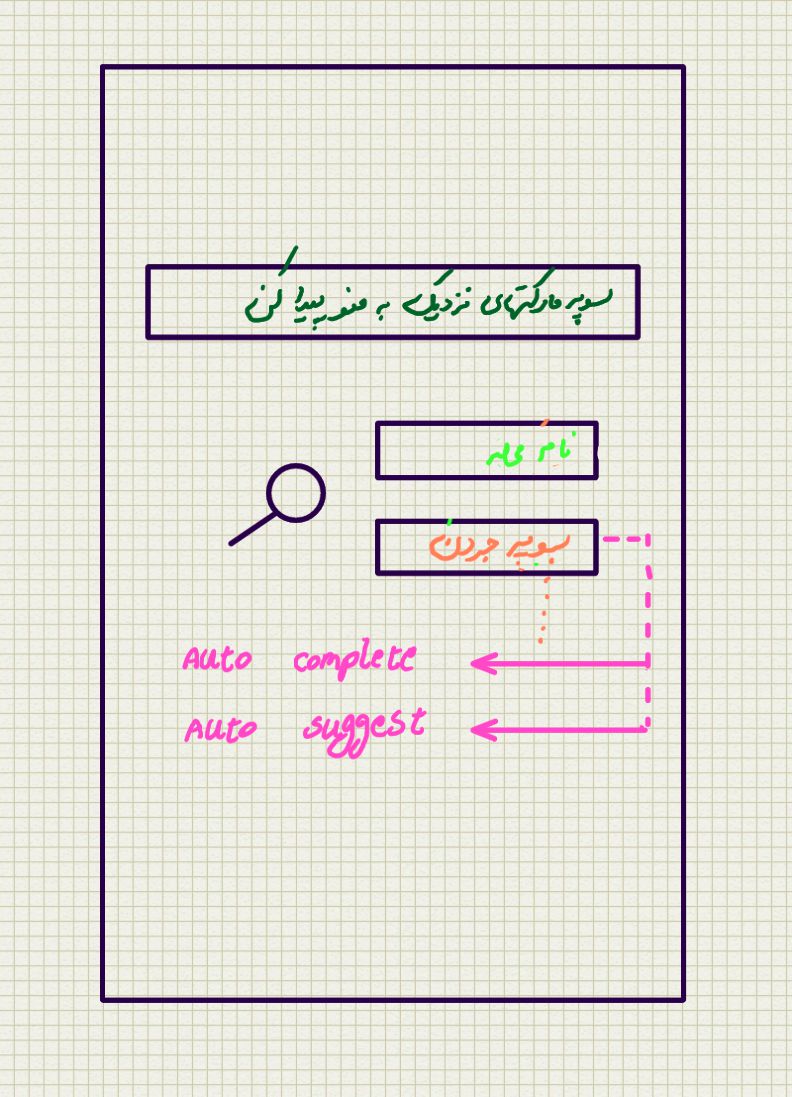 سوپر مارکتهای نزدیک به منو پیدا کن
نام محله
سوپر جردن
Auto complete
Auto suggest